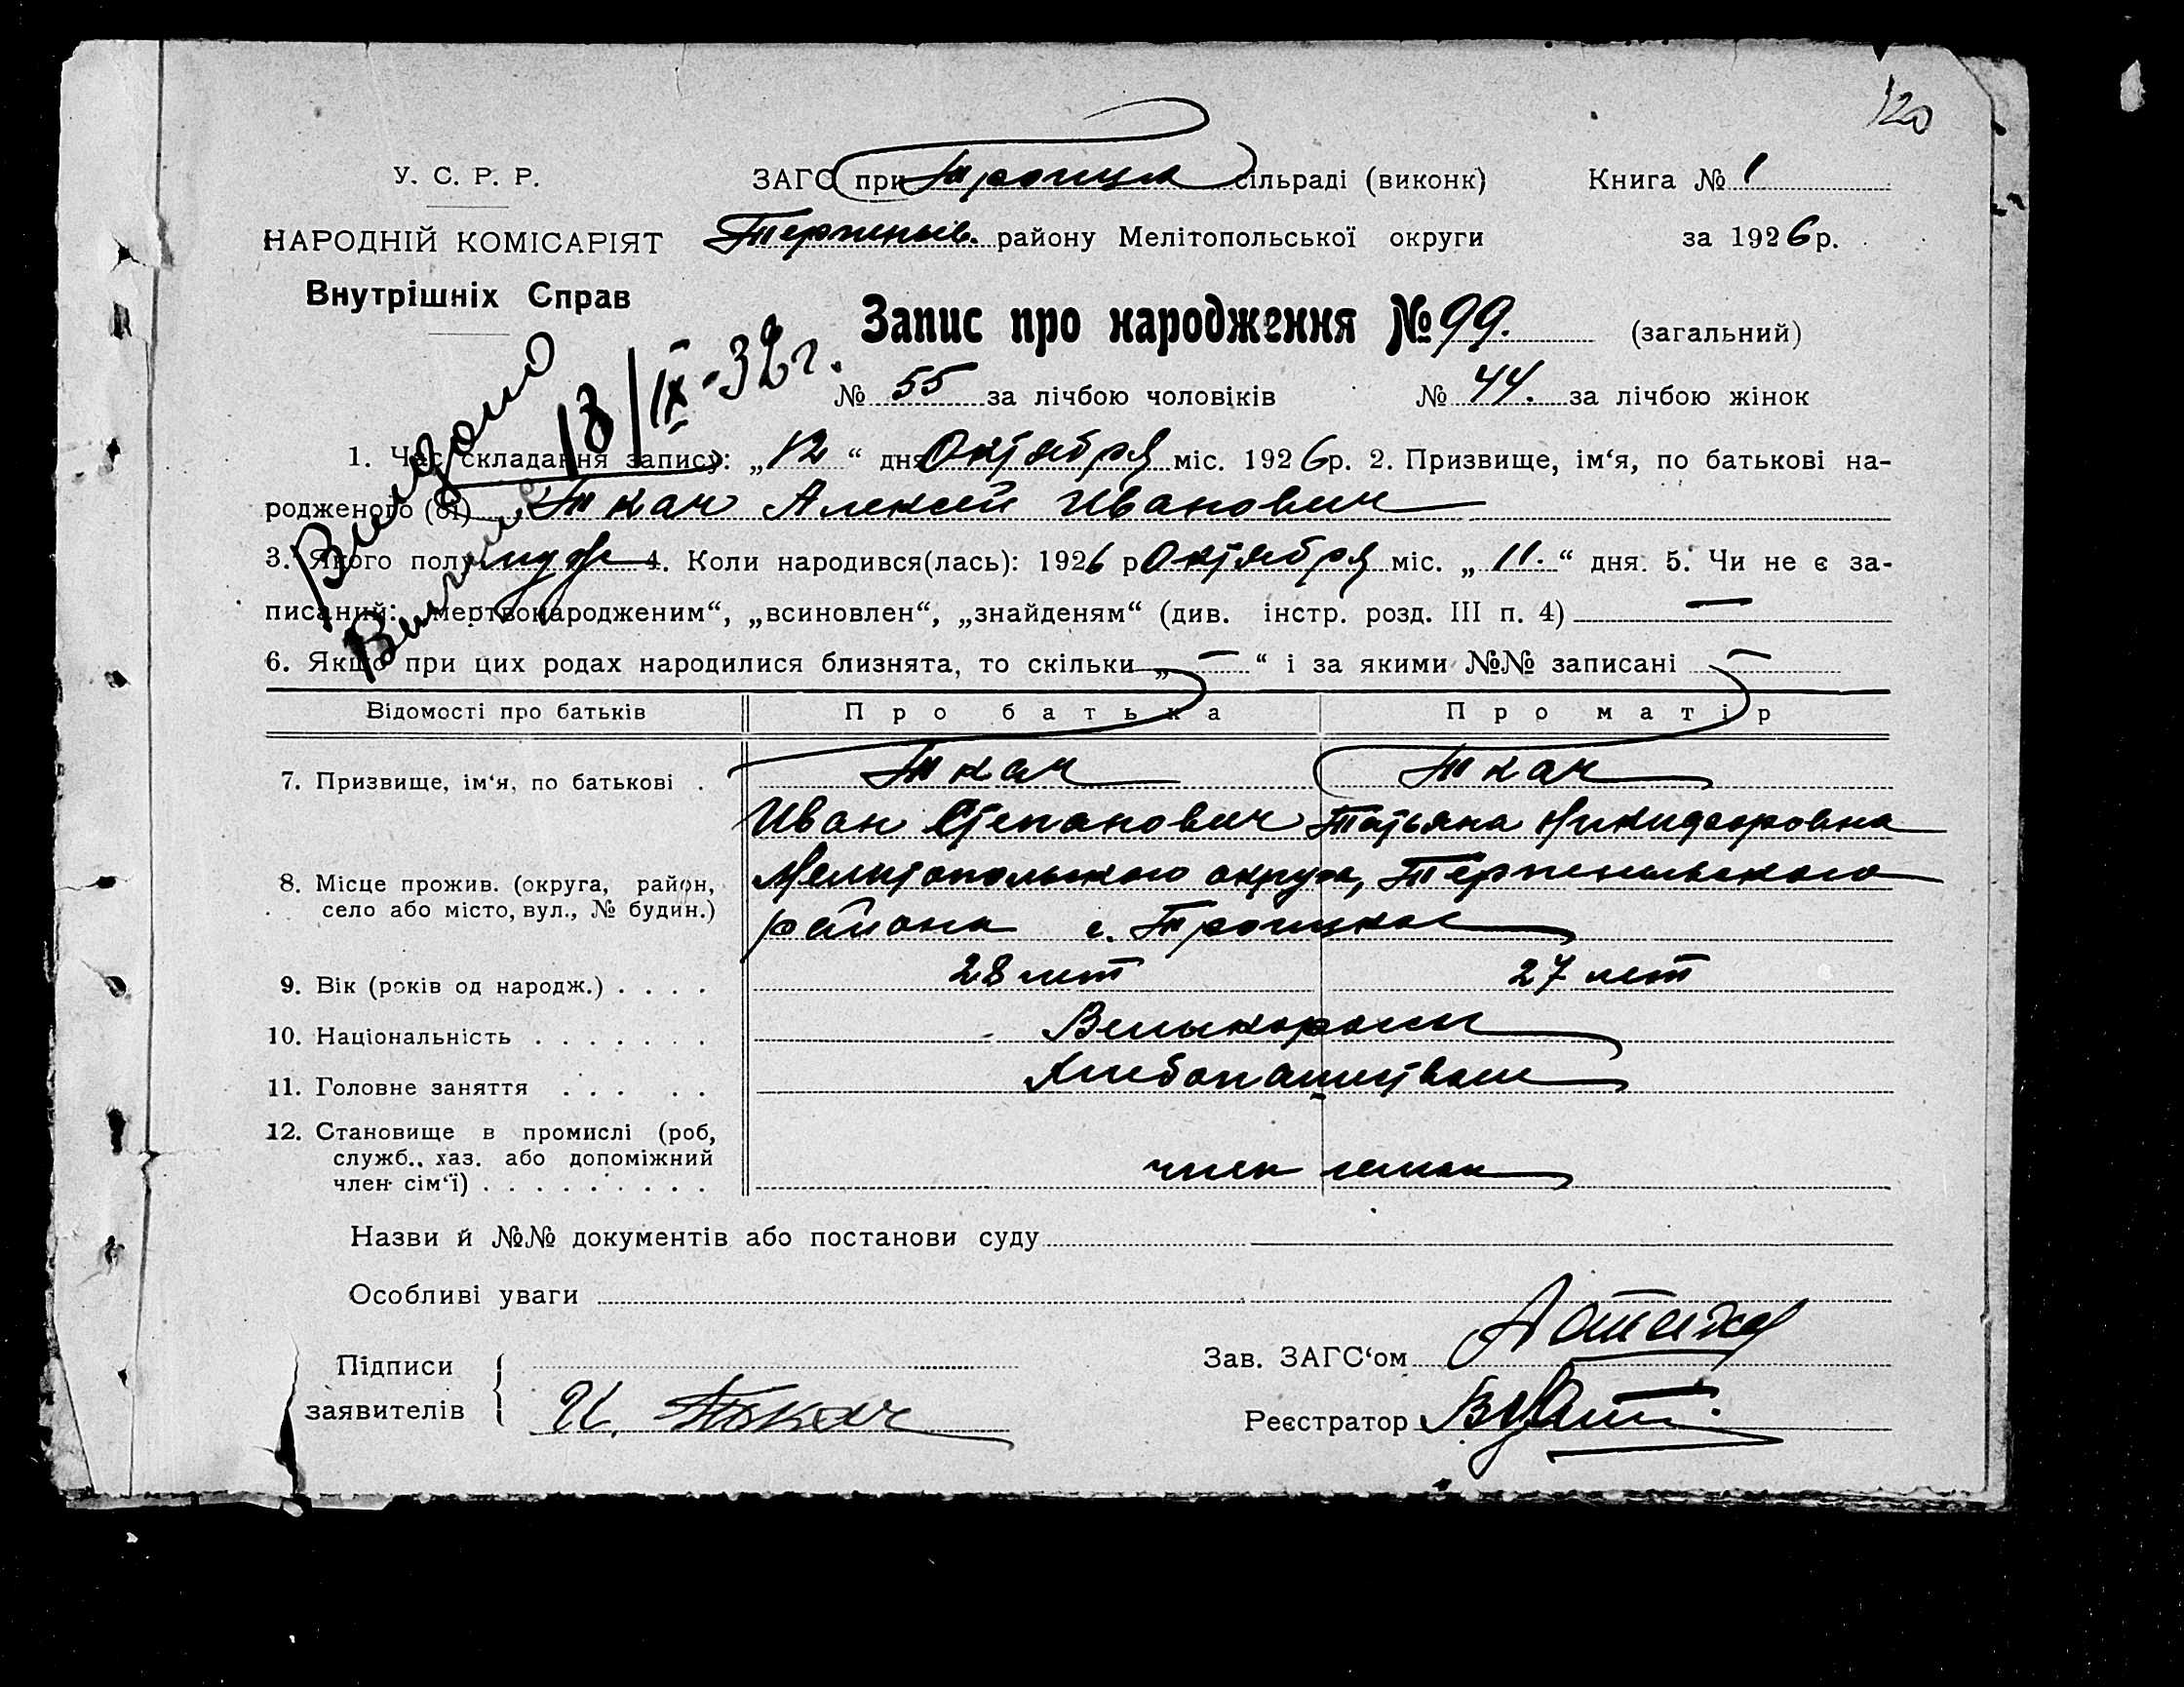 120
У. С. Р. Р.
ЗАГС при Троицк сільраді (виконк)
Книга № 1
НАРОДНІЙ КОМІСАРІЯТ
Терпеньев. району Мелітопольської округи
за 1926 р.
Внутрішніх Справ
Запис про народження № 99. (загальний)
№ 55 за лічбою чоловіків № 44. за лічбою жінок
Видано 13/IX-32 г.
1. Час складання запису: „12“ дня Октября міс. 1926 р. 2. Призвище, ім‘я, по батькові на-
родженого (ої) Ткач Алексей Иванович
3. Якого полу муж 4. Коли народився(лась): 1926 р Октября міс. „11.“ дня. 5. Чи не є за-
писаний: „мертвонародженим“, „всиновлен“, „знайденям“ (див. інстр. розд. III п. 4) —
6. Якщо при цих родах народилися близнята, то скільки „—“ і за якими №№ записані —
Відомості про батьків Про батька Про матір
7. Призвище, ім‘я, по батькові . Ткач Ткач
Иван Степанович Татьяна Никифоровна
8. Місце прожив. (округа, район, Мелитопольского округа, Терпеньевского
село або місто, вул., № будин.) района с. Троицкое
9. Вік (років од народж.) . . . . 28 лет 27 лет
10. Національність . . . . . . . Великоросы
11. Головне заняття . . . . . Хлебопашество
12. Становище в промислі (роб,
служб., хаз. або допоміжний
член сім‘ї) . . . . . . . . . член семьи
Назви й №№ документів або постанови суду
Особливі уваги
Підписи
заявителів
И. Ткач
Зав. ЗАГС‘ом
Реєстратор